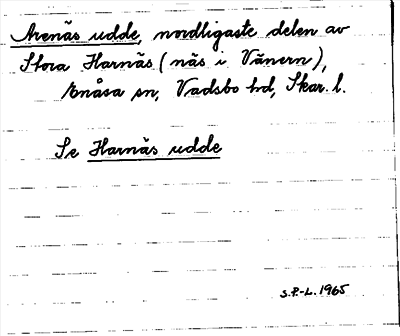 Arenäs udde, nordligaste delen av
Stora Harnäs (näs i Vänern),
Enåsa sn, Vadsbo hd, Skar. l.
Se Harnäs udde
S.P.-L. 1965